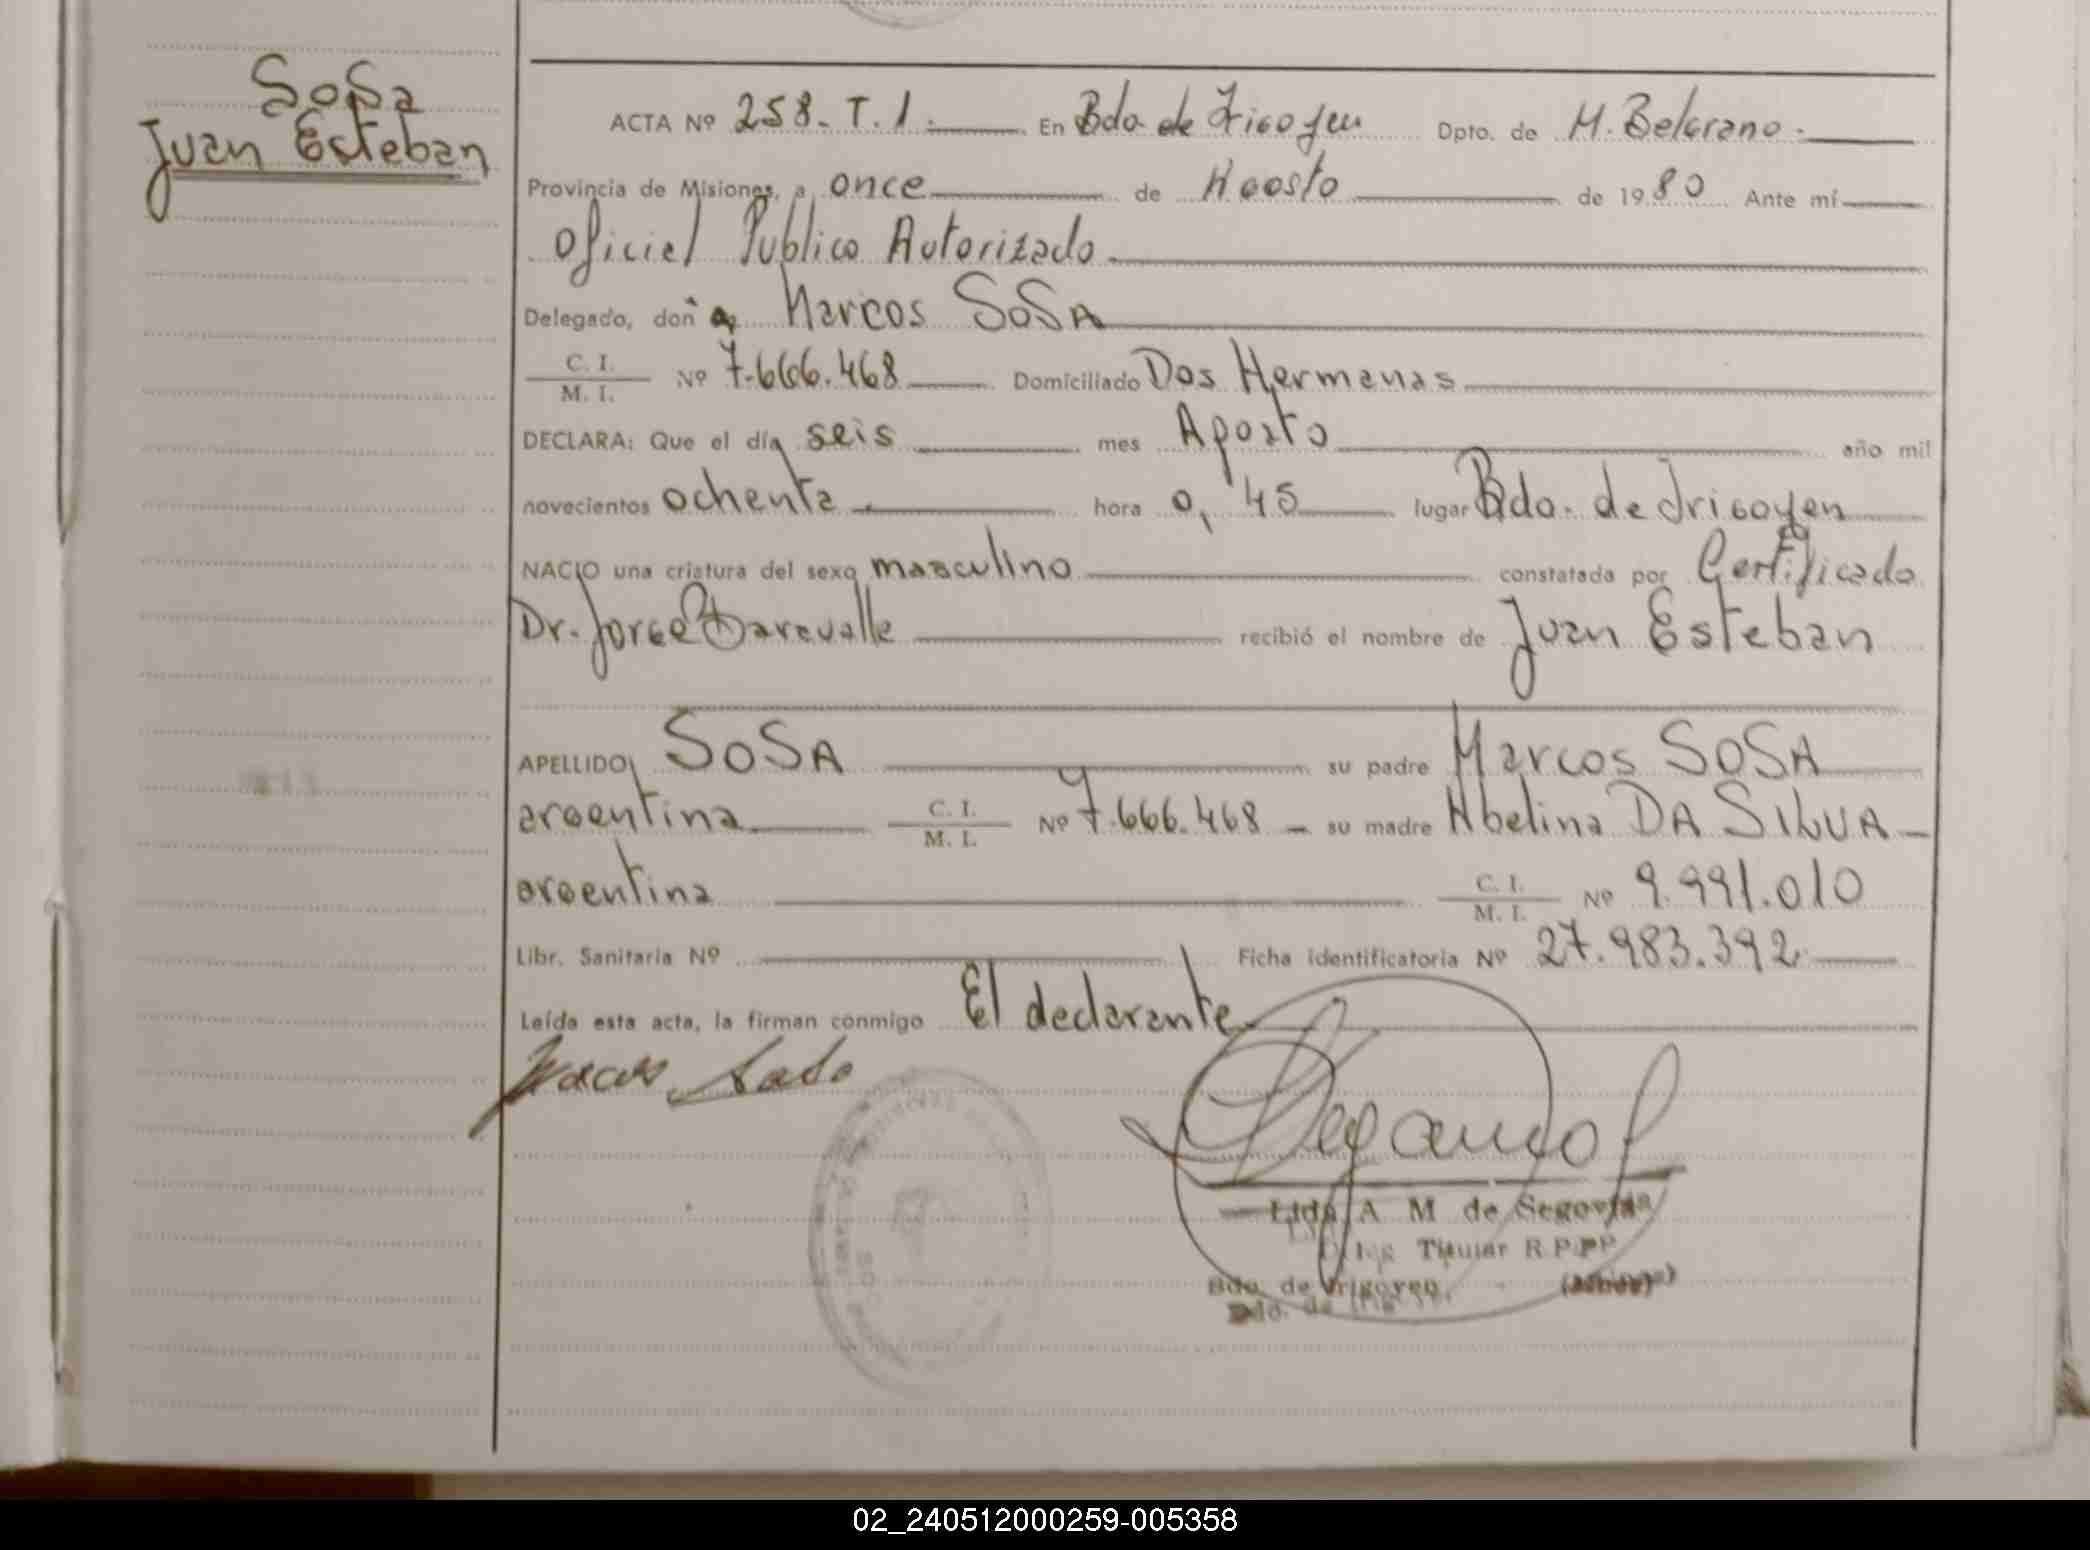 SoSa
Juan Esteban
ACTA Nº 258. T. 1. En Bdo. de Irigoyen Dpto. de M. Belgrano.
Provincia de Misiones, a once de Agosto de 1980 Ante mí
Oficial Publico Autorizado.
Delegado, don Marcos SoSA
C. I.
M. I. Nº 7.666.468 Domiciliado Dos Hermanas
DECLARA: Que el día seis mes Agosto año mil
novecientos ochenta hora 0,45 lugar Bdo. de Irigoyen
NACIO una criatura del sexo masculino constatada por Certificado
Dr. Jorge recibió el nombre de Juan Esteban
APELLIDO SoSA su padre Marcos SOSA
argentina C. I.
M. I. Nº 7.666.468 su madre Abelina DA SILVA
argentina C. I.
M. I. Nº 9.991.010
Libr. Sanitaria Nº Ficha identificatoria Nº 27.983.392
Leída esta acta, la firman conmigo El declarante
A M de Segovia
Titular R.P.PP
Bdo. de Irigoyen,
02_240512000259-005358